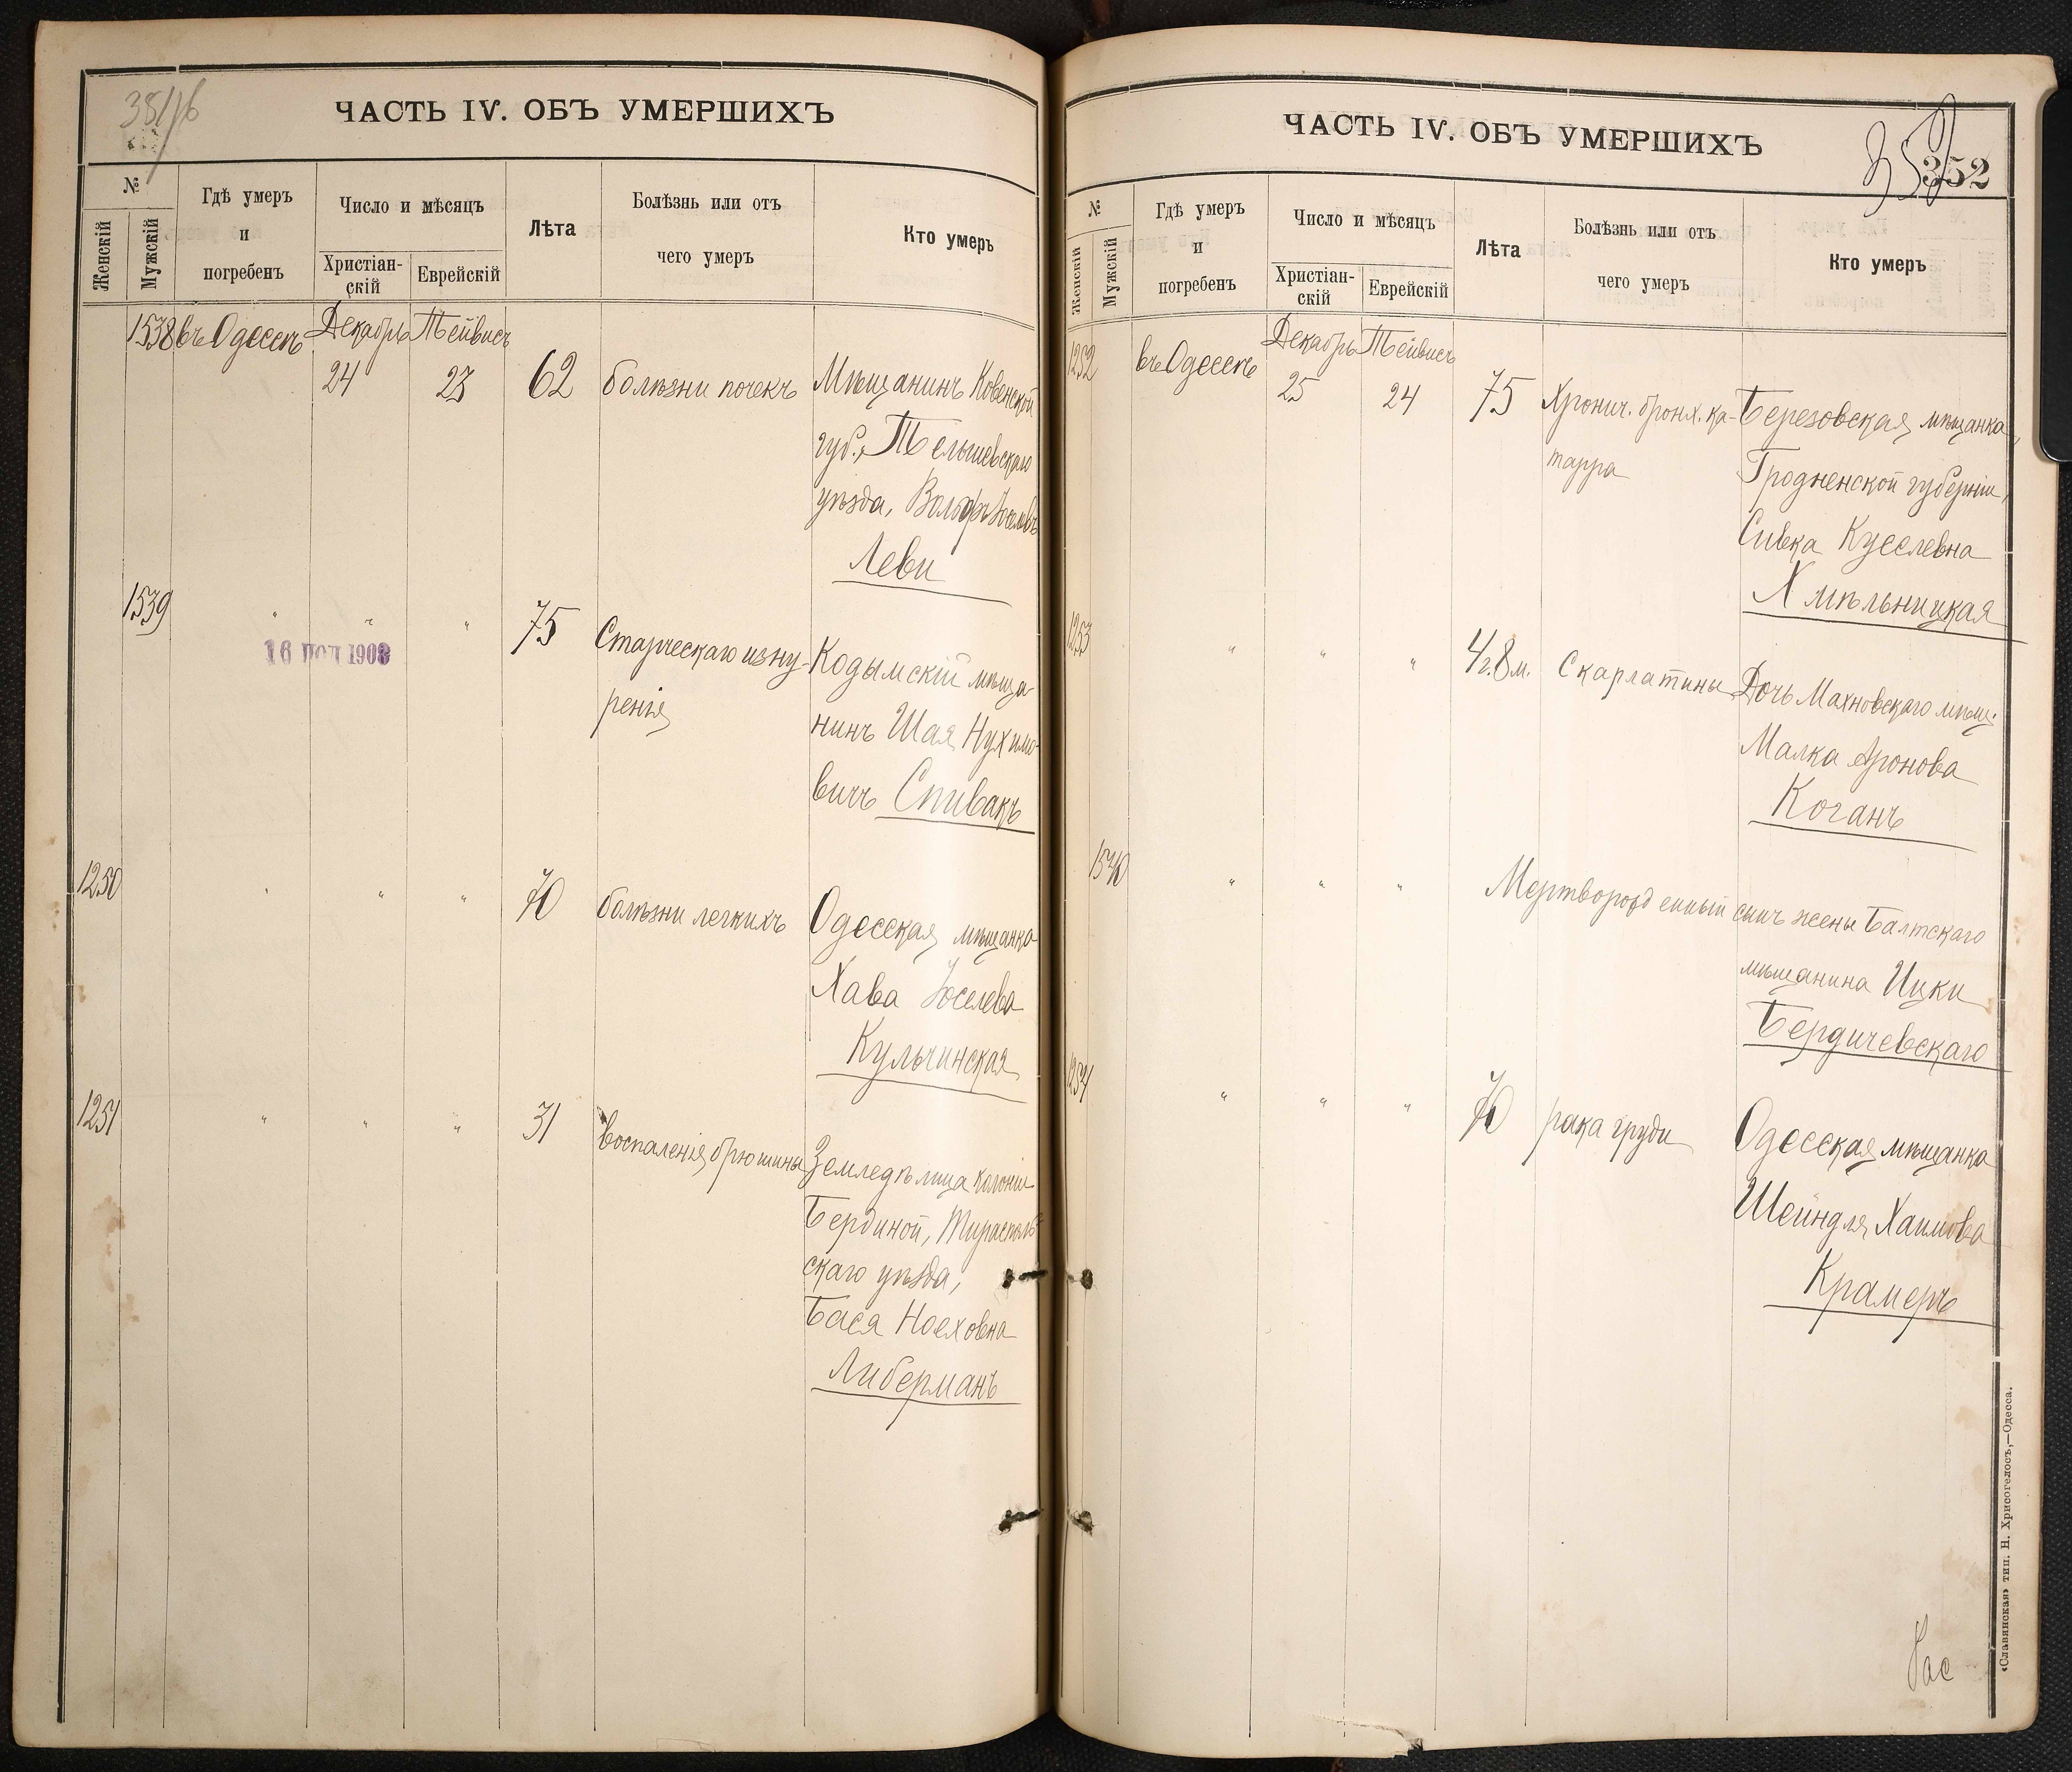 ЧАСТЬ IV. ОБЪ УМЕРШИХЪ
№
Женскій
Мужскій
Гдѣ умеръ
и
погребенъ
Число и мѣсяцъ
Христіан-
скій
Еврейскій
Лѣта
Болѣзнь или отъ
чего умеръ
Кто умеръ
1538 въ Одессѣ Декабрь Тейвисъ
24 23 62 болѣзни почекъ Мѣщанинъ Ковенской
губ., Тельшевскаго
уѣзда, Вольфъ
Леви
1539 " " " 75 Старческаго изну-
ренія
Кодымскій мѣща-
нинъ Шая Нухимо-
вичъ Спивакъ
1250 " " " 70 болѣзни легкихъ Одесская мѣщанка
Хава Іоселева
Кульчинская
1251 " " " 31 воспаленія брюшины Земледѣлица колоніи
Бердиной, Тирасполь-
скаго уѣзда,
Бася Ноеховна
Либерманъ
ЧАСТЬ IV. ОБЪ УМЕРШИХЪ
352
№
Женскій
Мужскій
Гдѣ умеръ
и
погребенъ
Число и мѣсяцъ
Христіан-
скій
Еврейскій
Лѣта
Болѣзнь или отъ
чего умеръ
Кто умеръ
1252 въ Одессѣ Декабрь Тейвисъ
25 24 75 Хронич. бронх. ка-
тарра
Березовская мѣщанка,
Гродненской губерніи,
Сивка Куселевна
Хмѣльницкая
1253 " " " 4г. 8м. Скарлатины Дочь Махновскаго мѣщ.
Малка Аронова
Коганъ
1540 " " " Мертворожденный сынъ жены Балтскаго
мѣщанина Ицки
Бердичевскаго
1254 " " " 70 рака груди Одесская мѣщанка
Шейндля Хаимова
Крамеръ
«Славянская» тип. Н. Хрисогелосъ,—Одесса.